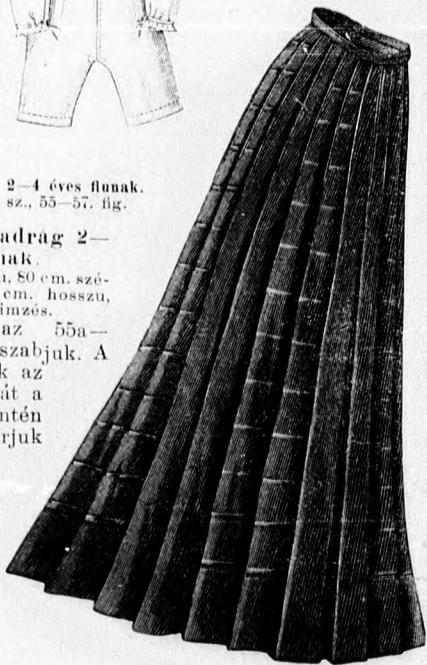 2—4 éves fiunak.
sz., 55—57. fig.
adrág 2—
nak.
, 80 cm. szé-
cm. hosszu,
imzés.
az 55a—
szabjuk. A
k az
át a
ntén
rjuk